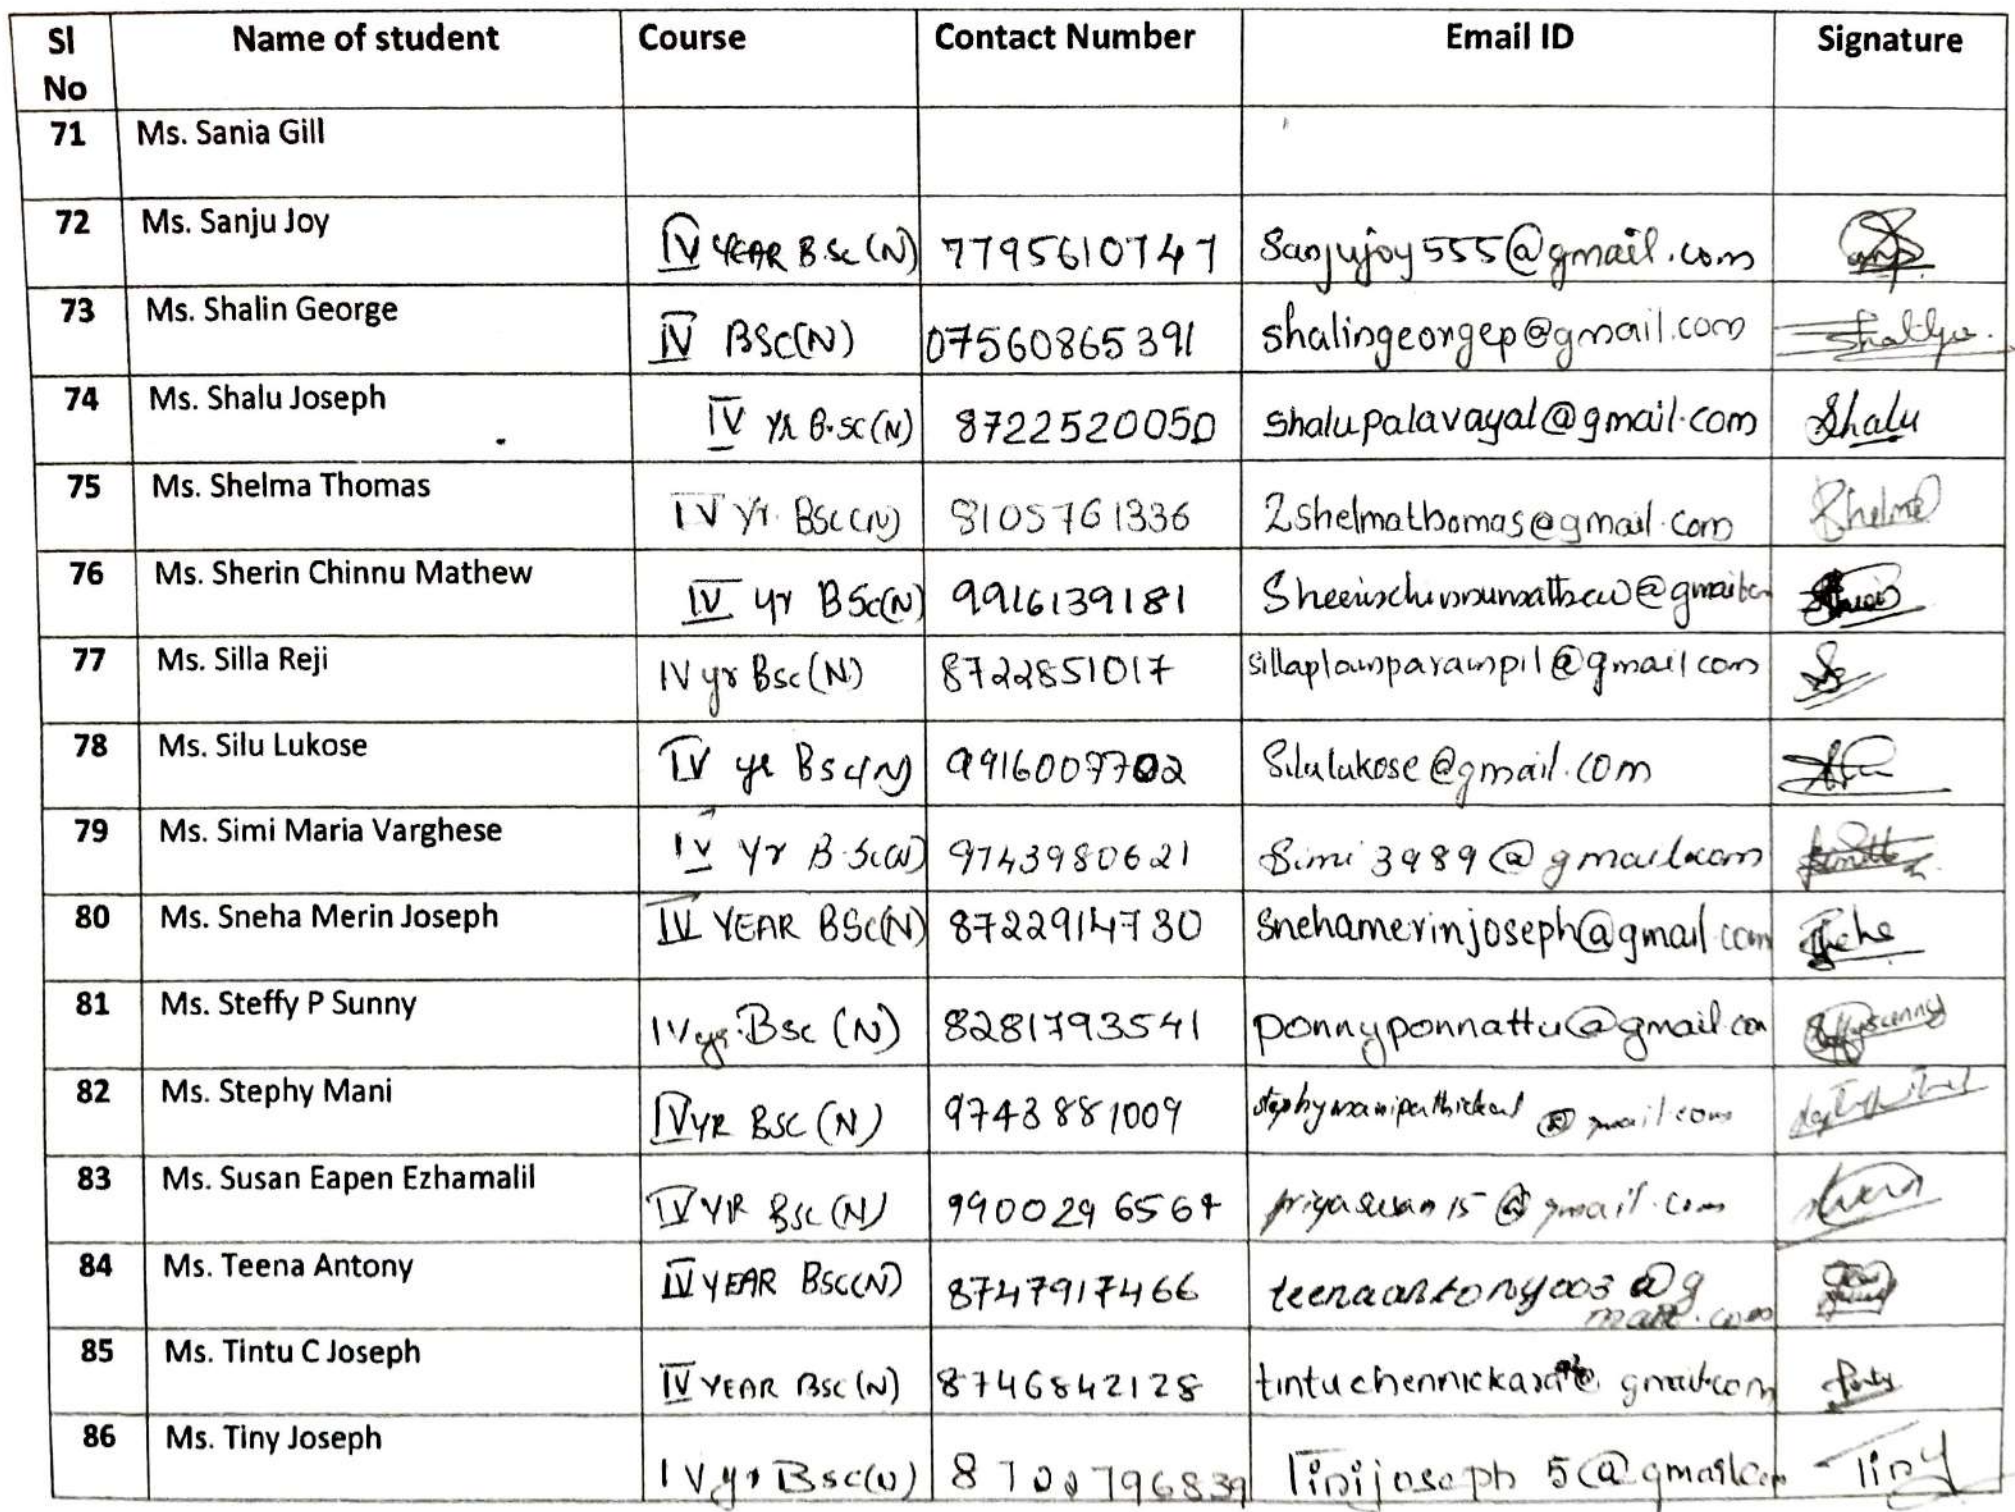 Sl No Name of student Course Contact Number Email ID Signature
71 Ms. Sania Gill
72 Ms. Sanju Joy IV YEAR B.Sc (N) 7795610747 Sanjujoy555@gmail.com
73 Ms. Shalin George IV BSC(N) 07560865391 shalingeorgep@gmail.com
74 Ms. Shalu Joseph IV YR B.SC(N) 8722520050 shalupalavayal@gmail.com Shalu
75 Ms. Shelma Thomas IV Yr. BSC(N) 8105761336 2shelmathomas@gmail.com Shelma
76 Ms. Sherin Chinnu Mathew IV yr BSc(N) 9916139181
77 Ms. Silla Reji IV yr Bsc(N) 8722851017
78 Ms. Silu Lukose IV yr BSc(N) 9916009702 Silulukose@gmail.com
79 Ms. Simi Maria Varghese IV Yr B.Sc(N) 9743980621 Simi3989@gmail.com
80 Ms. Sneha Merin Joseph IV YEAR BSc(N) 8722914730 Snehamerinjoseph@gmail.com
81 Ms. Steffy P Sunny IV yr. Bsc (N) 8281793541 ponnyponnattu@gmail.com
82 Ms. Stephy Mani IV YR BSC (N) 9743881009 @gmail.com
83 Ms. Susan Eapen Ezhamalil IV YR BSc (N) 9900296567 priyasusan15@gmail.com
84 Ms. Teena Antony IV YEAR BSC(N) 8747917466 teenaantony003@g
mail.com
85 Ms. Tintu C Joseph IV YEAR BSC (N) 8746842128 gmail.com
86 Ms. Tiny Joseph IV yr Bsc(N) Tinijoseph5@gmail.com Tiny